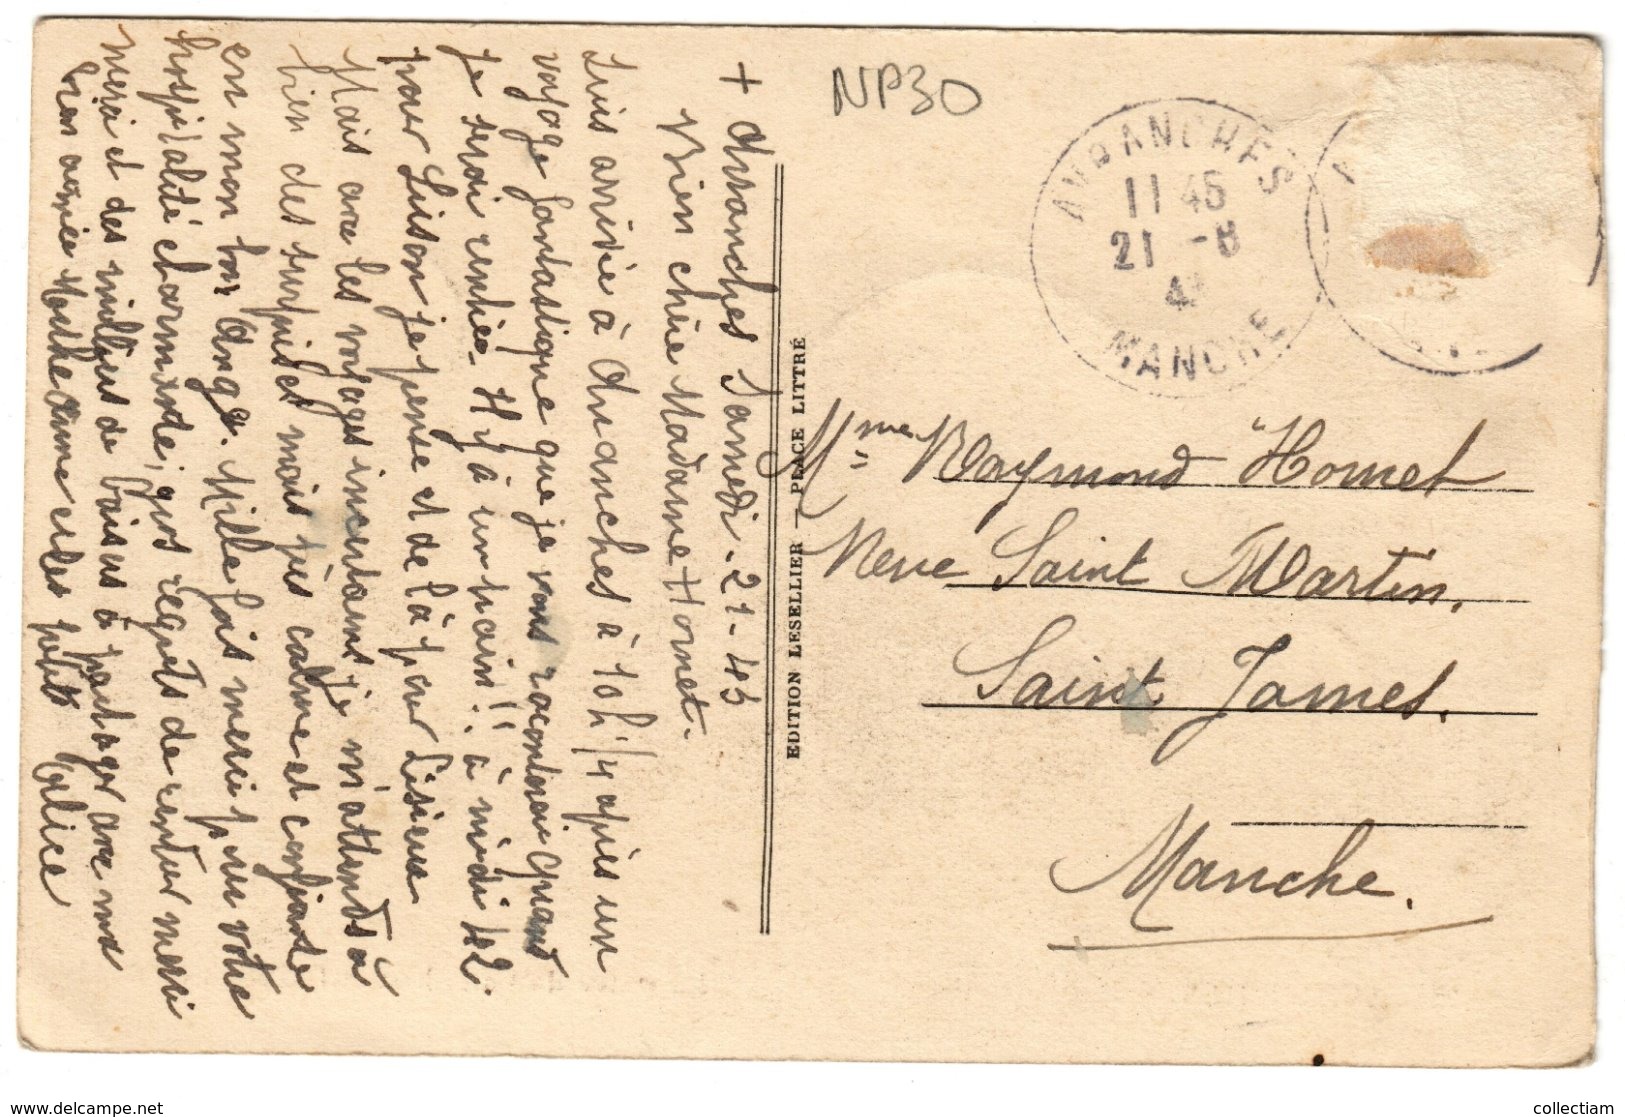 + Avranches Samedi - 21 - 45
Bien chère Madame Hornet.
Suis arrivée à Avranches à 10h 1/4 après un
voyage fantastique que je vous raconterai quand
je serai rentrée. Il y a un pain !! à midi 42
pour Luison je pense et de là pour Lisieux
Mais avec les voyages incertains je m'attends à
bien des surprises mais très calme et confiante
en mon bon Ange. Mille fois merci pour votre
hospitalité charmante, gros regrets de rentrer merci
merci et des milliers de baisers à partager avec ma
bien aimée Marthe Anne et les petits Alice
NP30
AVRANCHES
11 45
21 -8
4
MANCHE
EDITION LESELLIER — PLACE LITTRÉ
Mme Raymond Hornet
Reue Saint Martin.
Saint James.
Manche.
collectiam
www.delcampe.net